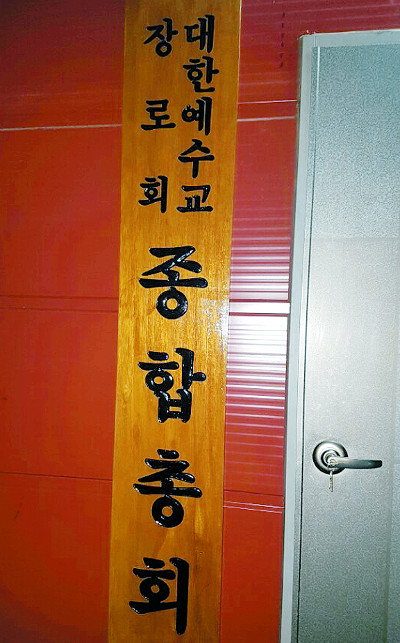 대한예수교
장로회
종합총회